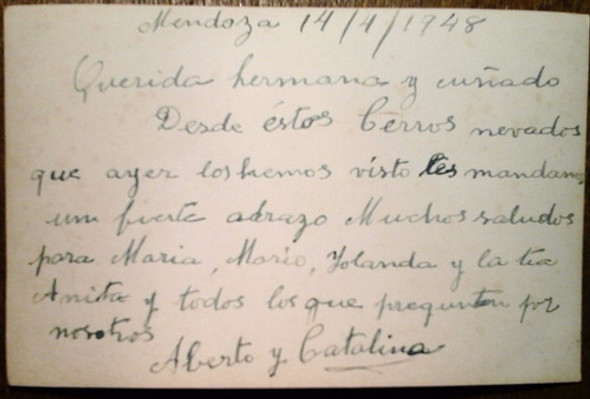 Mendoza 14/4/1948
Querida hermana y cuñado
Desde éstos Cerros nevados
que ayer los hemos visto les mandamos
um fuerte abrazo Muchos saludos
para Maria, Mario, Yolanda y la tia
Anita y todos los que pregunten por
nosotros
Alberto y Catalina